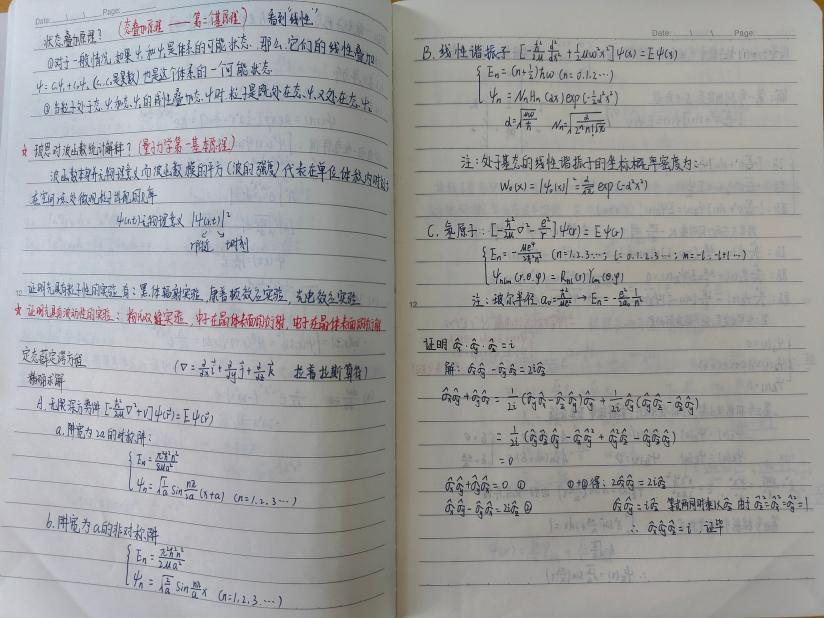 Date: \ \ Page:
状态叠加原理？（态叠加原理——第二基本原理） 看到"线性"
①对于一般情况,如果ψ₁和ψ₂是体系的可能状态,那么,它们的线性叠加
ψ=c₁ψ₁+c₂ψ₂ (c₁,c₂是复数)也是这个体系的一个可能状态
②当粒子处于态ψ₁和态ψ₂的线性叠加态ψ时,粒子是既处在态ψ₁又处在态ψ₂
★ 玻恩对波函数统计解释？(量子力学第一基本原理)
波函数本身无物理意义而波函数模的平方(波的强度)代表在单位体积内时刻t
在空间
ψ(r,t)无物理意义 |ψ(r,t)|²
r附近 t时刻
证明光具有粒子性的实验有：黑体辐射实验,康普顿效应实验,光电效应实验
★ 证明光具有波动性的实验：杨氏双缝实验,中子在晶体表面的衍射,电子在晶体表面的衍射
定态薛定谔方程 (∇=∂/∂x i⃗+∂/∂y j⃗+∂/∂z k⃗ 拉普拉斯算符)
精确求解
A.无限深方势阱 [-ħ²/2μ ∇²+V]ψ(r⃗)=Eψ(r⃗)
a.阱宽为2a的对称阱:
Eₙ=π²ħ²n²/8μa²
ψₙ=√(1/a) sin nπ/2a (x+a) (n=1,2,3…)
b.阱宽为a的非对称阱
Eₙ=π²ħ²n²/2μa²
ψₙ=√(2/a) sin nπ/a x (n=1,2,3…)
Date: \ \ Page:
B.线性谐振子 [-ħ²/2μ d²/dx²+½μω²x²]ψ(x)=Eψ(x)
Eₙ=(n+½)ħω (n=0,1,2…)
ψₙ=NₙHₙ(αx)exp(-½α²x²)
α=√(μω/ħ) Nₙ=√(α/2ⁿn!√π)
注:处于基态的线性谐振子的坐标概率密度为:
W₀(x)=|ψ₀(x)|²=α/√π exp(-α²x²)
C.氢原子:[-ħ²/2μ ∇²-e²/r]ψ(r)=Eψ(r)
Eₙ=-μe⁴/2ħ²n² (n=1,2,3…; l=0,1,2,3…; m=-l,-l+1…)
ψₙₗₘ(r,θ,φ)=Rₙₗ(r)Yₗₘ(θ,φ)
注:玻尔半径 a₀=ħ²/μe² → Eₙ=-e²/2a₀ 1/n²
12
证明 σ̂ₓ·σ̂ᵧ·σ̂_z=i
解:σ̂ₓσ̂ᵧ-σ̂ᵧσ̂ₓ=2iσ̂_z
σ̂ₓσ̂ᵧ+σ̂ᵧσ̂ₓ=1/2i (σ̂ᵧσ̂_z-σ̂_zσ̂ᵧ)σ̂ᵧ+1/2i σ̂ᵧ(σ̂ᵧσ̂_z-σ̂_zσ̂ᵧ)
=1/2i (σ̂ᵧσ̂_zσ̂ᵧ-σ̂_zσ̂ᵧ²+σ̂ᵧ²σ̂_z-σ̂ᵧσ̂_zσ̂ᵧ)
=0
σ̂ₓσ̂ᵧ+σ̂ᵧσ̂ₓ=0 ① ①+②得:2σ̂ₓσ̂ᵧ=2iσ̂_z
σ̂ₓσ̂ᵧ-σ̂ᵧσ̂ₓ=2iσ̂_z ② σ̂ₓσ̂ᵧ=iσ̂_z 等式两同时乘以σ̂_z 由于σ̂ₓ²=σ̂ᵧ²=σ̂_z²=1
∴ σ̂ₓσ̂ᵧσ̂_z=i 证毕